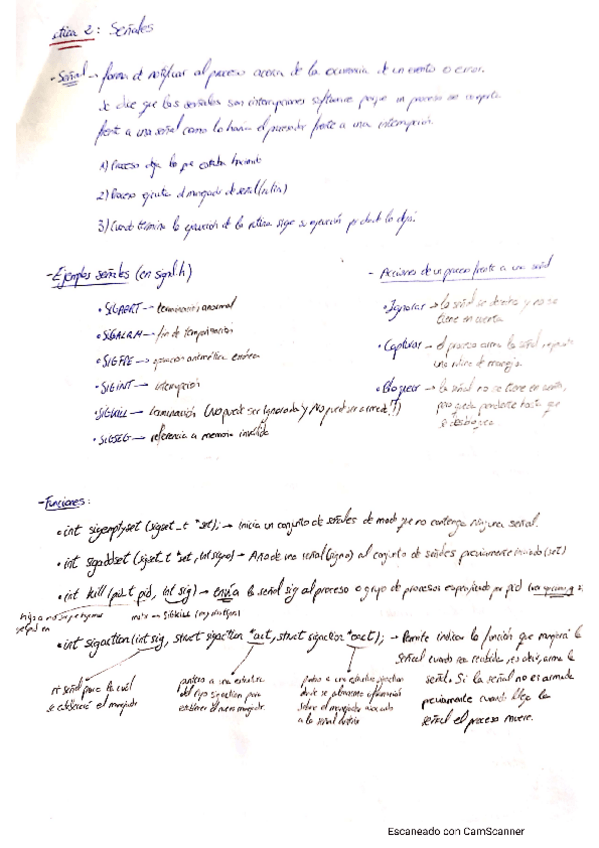 ctica 2: Señales
- Señal → forma de notificar al proceso acerca de la ocurrencia de un evento o error.
Se dice que las señales son interrupciones software porque un proceso se comporta
frente a una señal como lo haría el procesador frente a una interrupción.
1) Proceso deja lo que estaba haciendo
2) Proceso ejecuta el manejador de señal (rutina)
3) Cuando termina la ejecución de la rutina sigue su ejecución por donde lo dejó.
- Ejemplos señales (en signal.h)
• SIGABRT → terminación anormal
• SIGALRM → fin de temporización
• SIGFPE → operación aritmética errónea
• SIGINT → interrupción
• SIGKILL → terminación (No puede ser ignorada y No puede ser armada!!)
• SIGSEG → referencia a memoria inválida
- Acciones de un proceso frente a una señal
• Ignorar → la señal se desecha y no se
tiene en cuenta
• Capturar → el proceso arma la señal
una rutina de manejo.
• Bloquear → la señal no se tiene en cuenta,
pero queda pendiente hasta que
se desbloquea.
- Funciones:
• int sigemptyset (sigset_t *set); → Inicia un conjunto de señales de modo que no contenga ninguna señal.
• int sigaddset (sigset_t *set, int signo) → Añade una señal (signo) al conjunto de señales previamente iniciado (set)
• int kill (pid_t pid, int sig) → envía la señal sig al proceso o grupo de procesos especificado por pid
• int sigaction (int sig, struct sigaction *act, struct sigaction *oact); → Permite indicar la función que manejará la
señal cuando sea recibida, es decir, arma la
señal. Si la señal no es armada
previamente cuando llega la
señal el proceso muere.
nº señal para la cuál
se establecerá el manejador
puntero a una estructura
del tipo sigaction para
establecer el nuevo manejador.
puntero a una estructura sigaction
donde se almacena información
sobre el manejador asociado
a la señal
Escaneado con CamScanner